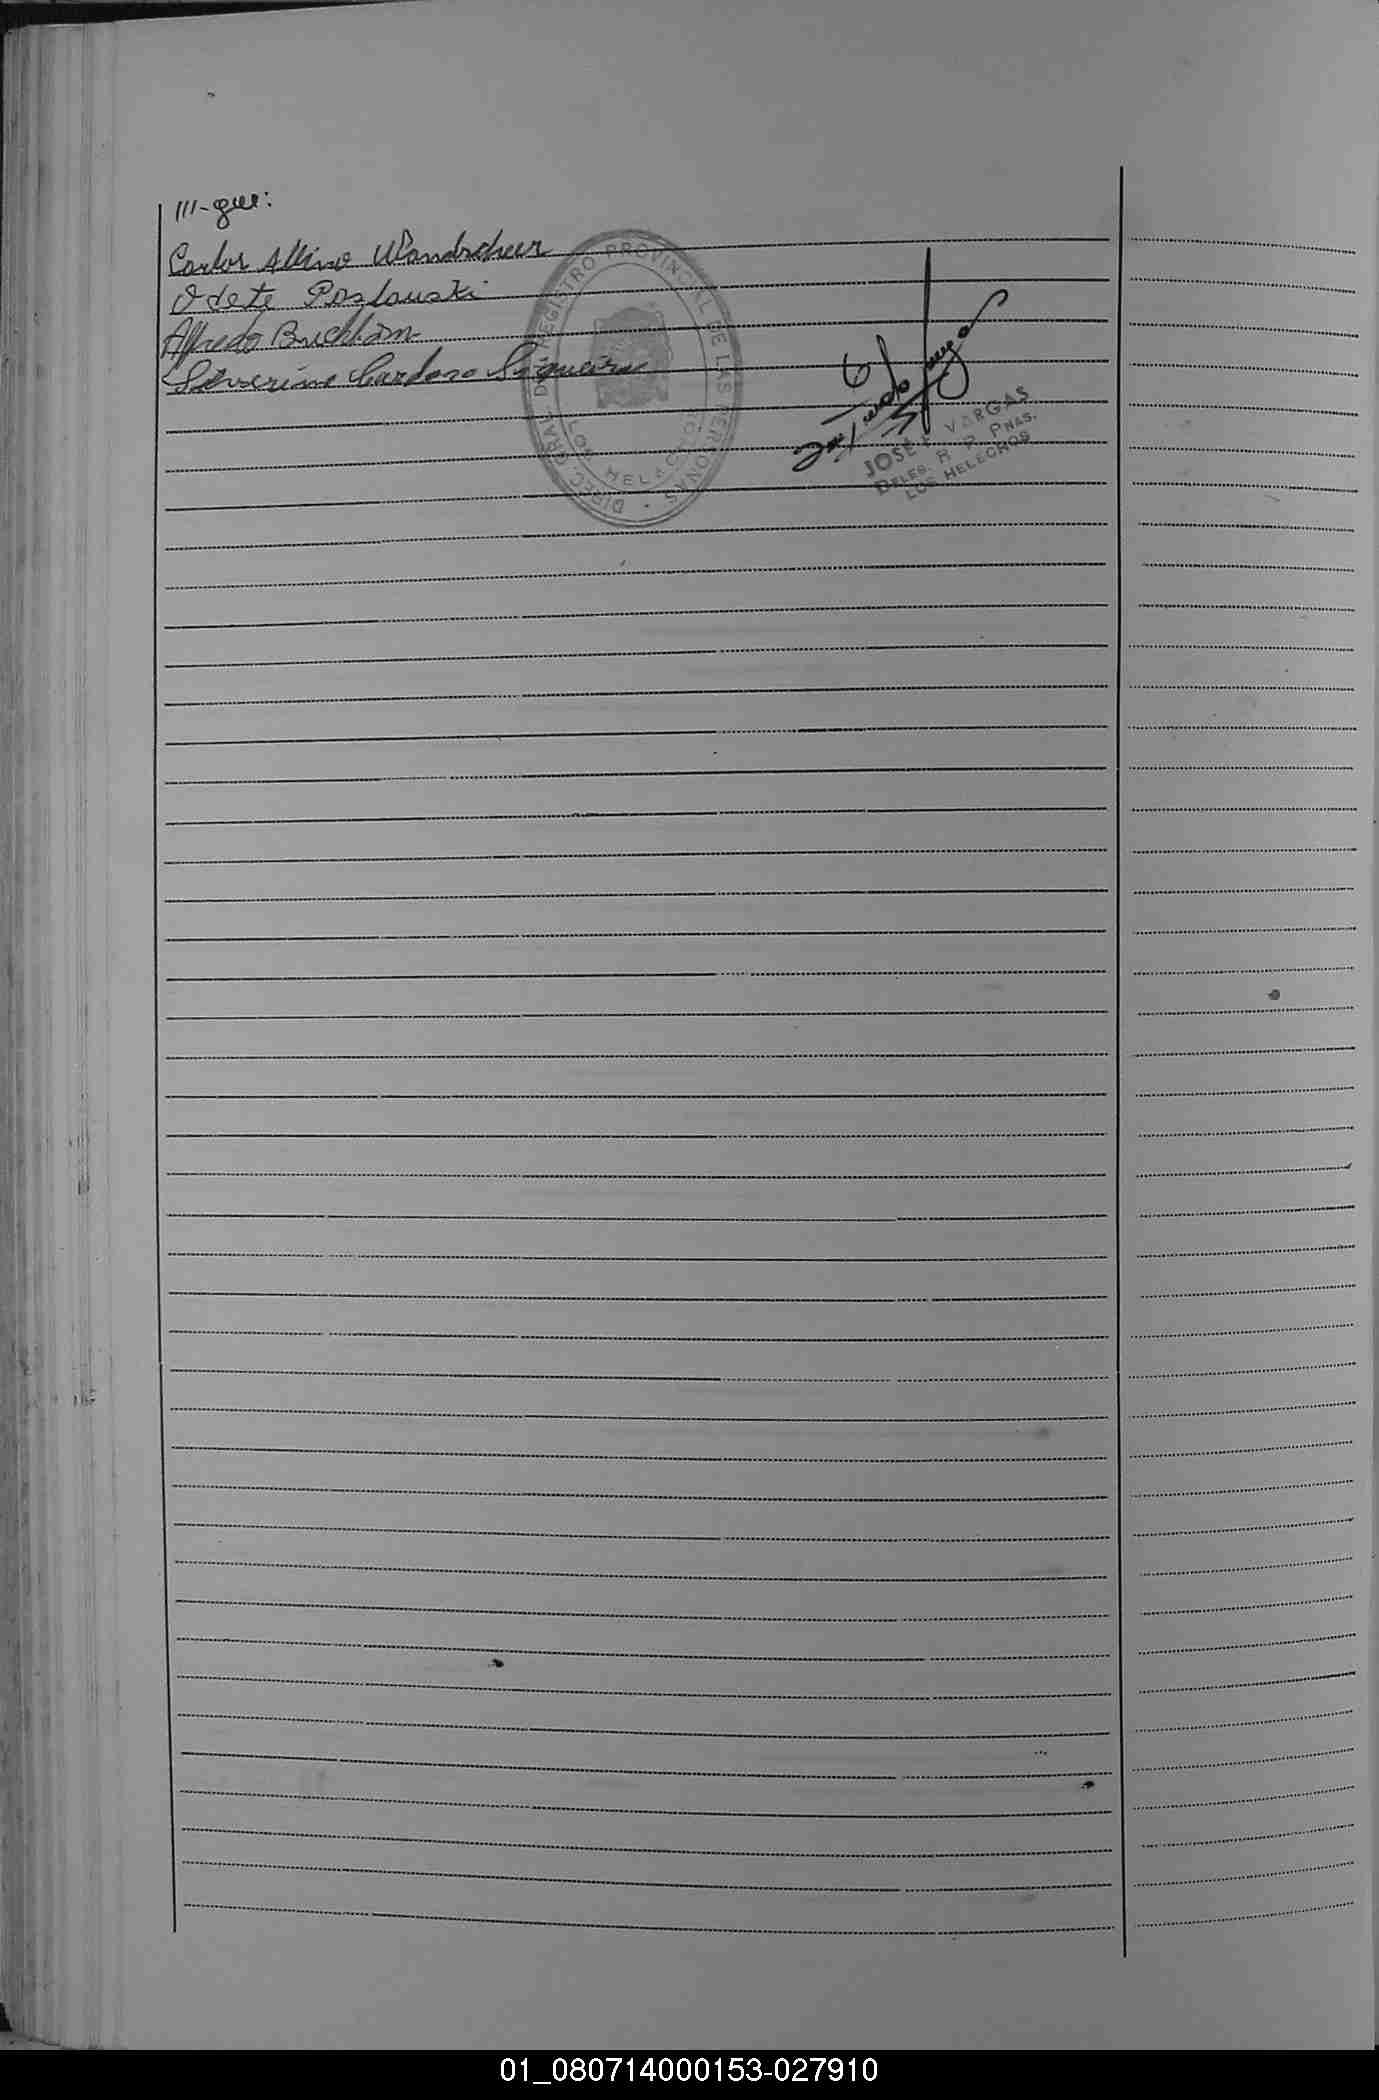 ///-que:
Carlos Albino Wandscheer
Odete Poslauski
Alfredo Buchham
Severino Cardoso Siqueira
DIREC. GRAL. DEL REGISTRO PROVINCIAL DE LAS PERSONAS
LOS HELECHOS
JOSÉ F. VARGAS
DELEG. R. P. PNAS.
LOS HELECHOS
01_080714000153-027910